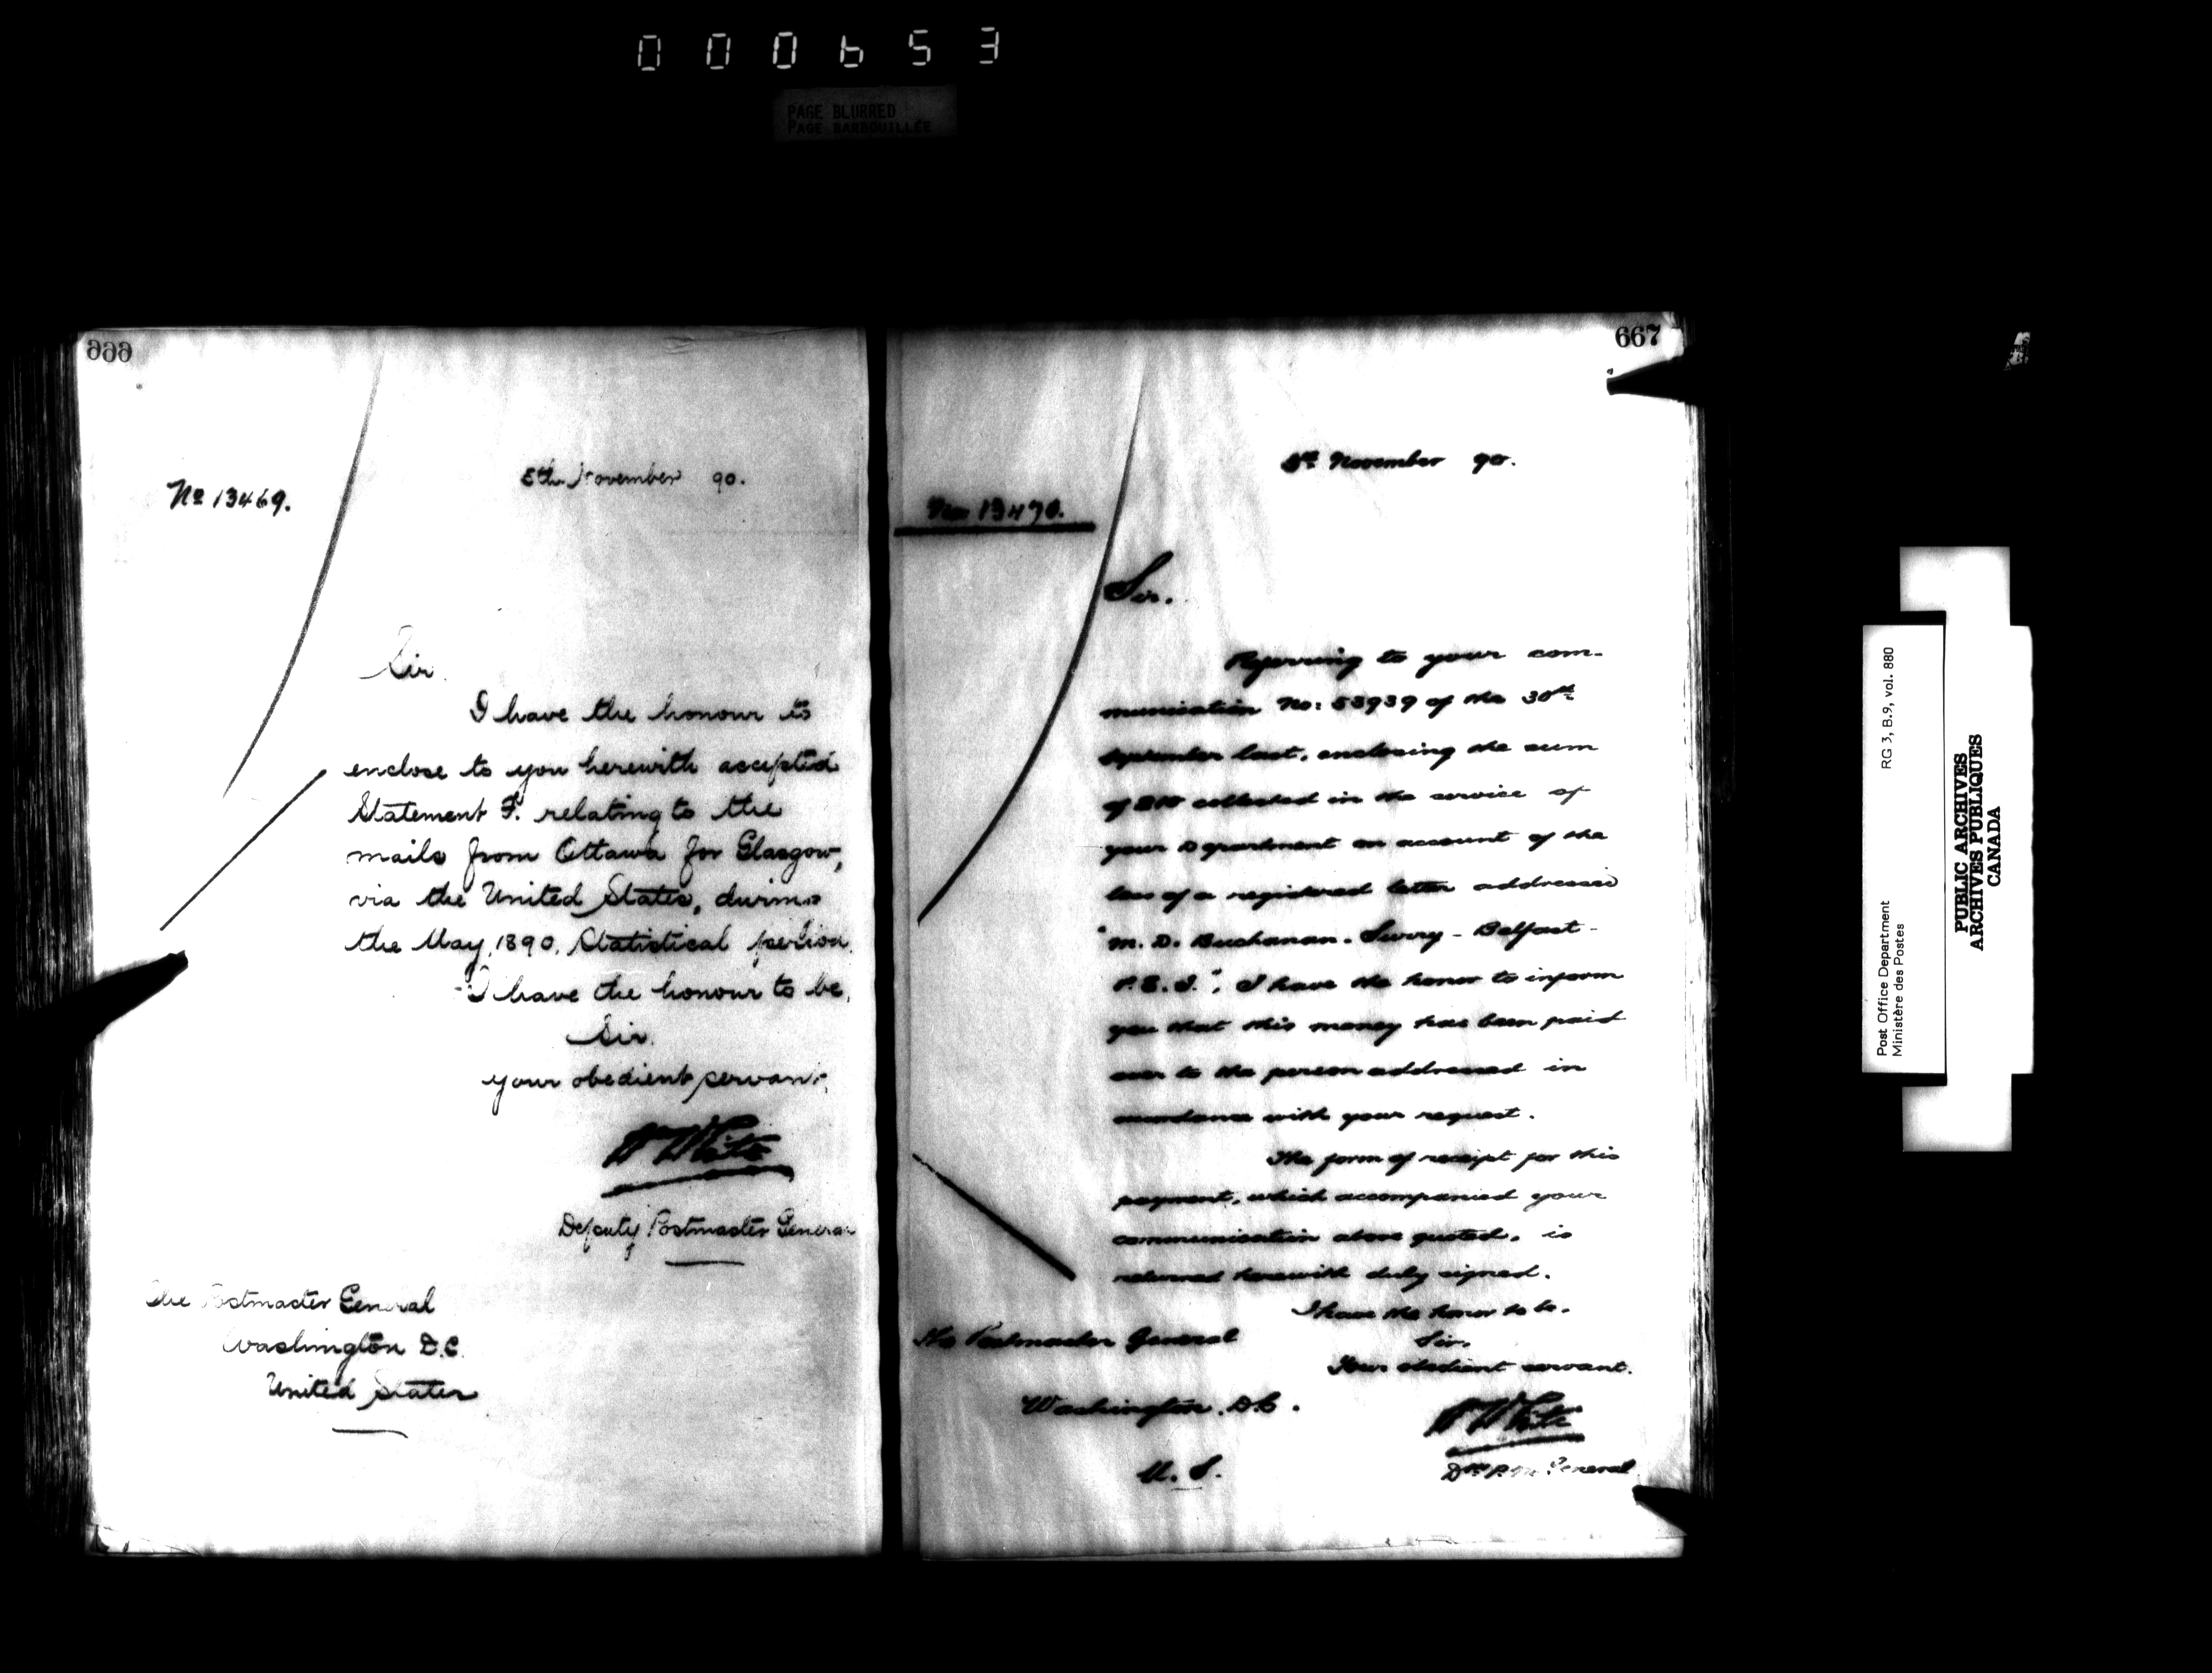 000653
PAGE BLURRED
PAGE BARBOUILLÉE
666
5th November 90.
No 13469.
Sir.
I have the honour to
enclose to you herewith accepted
Statement F. relating to the
mails from Ottawa for Glasgow,
via the United States, during
the May, 1890, Statistical period.
I have the honour to be,
Sir.
your obedient servant,
W White
Deputy Postmaster General
The Postmaster General
Washington D.C.
United States
667
5th November 90.
No 13470.
Sir.
Referring to your com-
munication No: 53939 of the 30th
September last, enclosing the sum
of $10 collected in the service of
your Department on account of the
loss of a registered letter addressed
"M. D. Buchanan. Surry - Belfast -
P.E.I.", I have the honor to inform
you that this money has been paid
over to the person addressed in
accordance with your request.
The form of receipt for this
payment, which accompanied your
communication above quoted, is
returned herewith duly signed.
I have the honor to be.
Sir.
Your obedient servant.
W White
The Postmaster General
Washington. D.C.
U. S.
Dy P.M. General
Post Office Department
Ministère des Postes
RG 3, B.9, vol. 880
PUBLIC ARCHIVES
ARCHIVES PUBLIQUES
CANADA